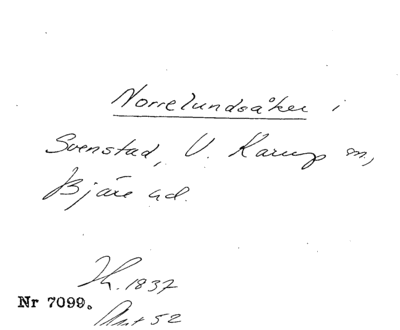 Norrelundsåker i
Svenstad, V. Karup sn,
Bjäre hd.
Th. 1837
Nr 7099.
Akt 52